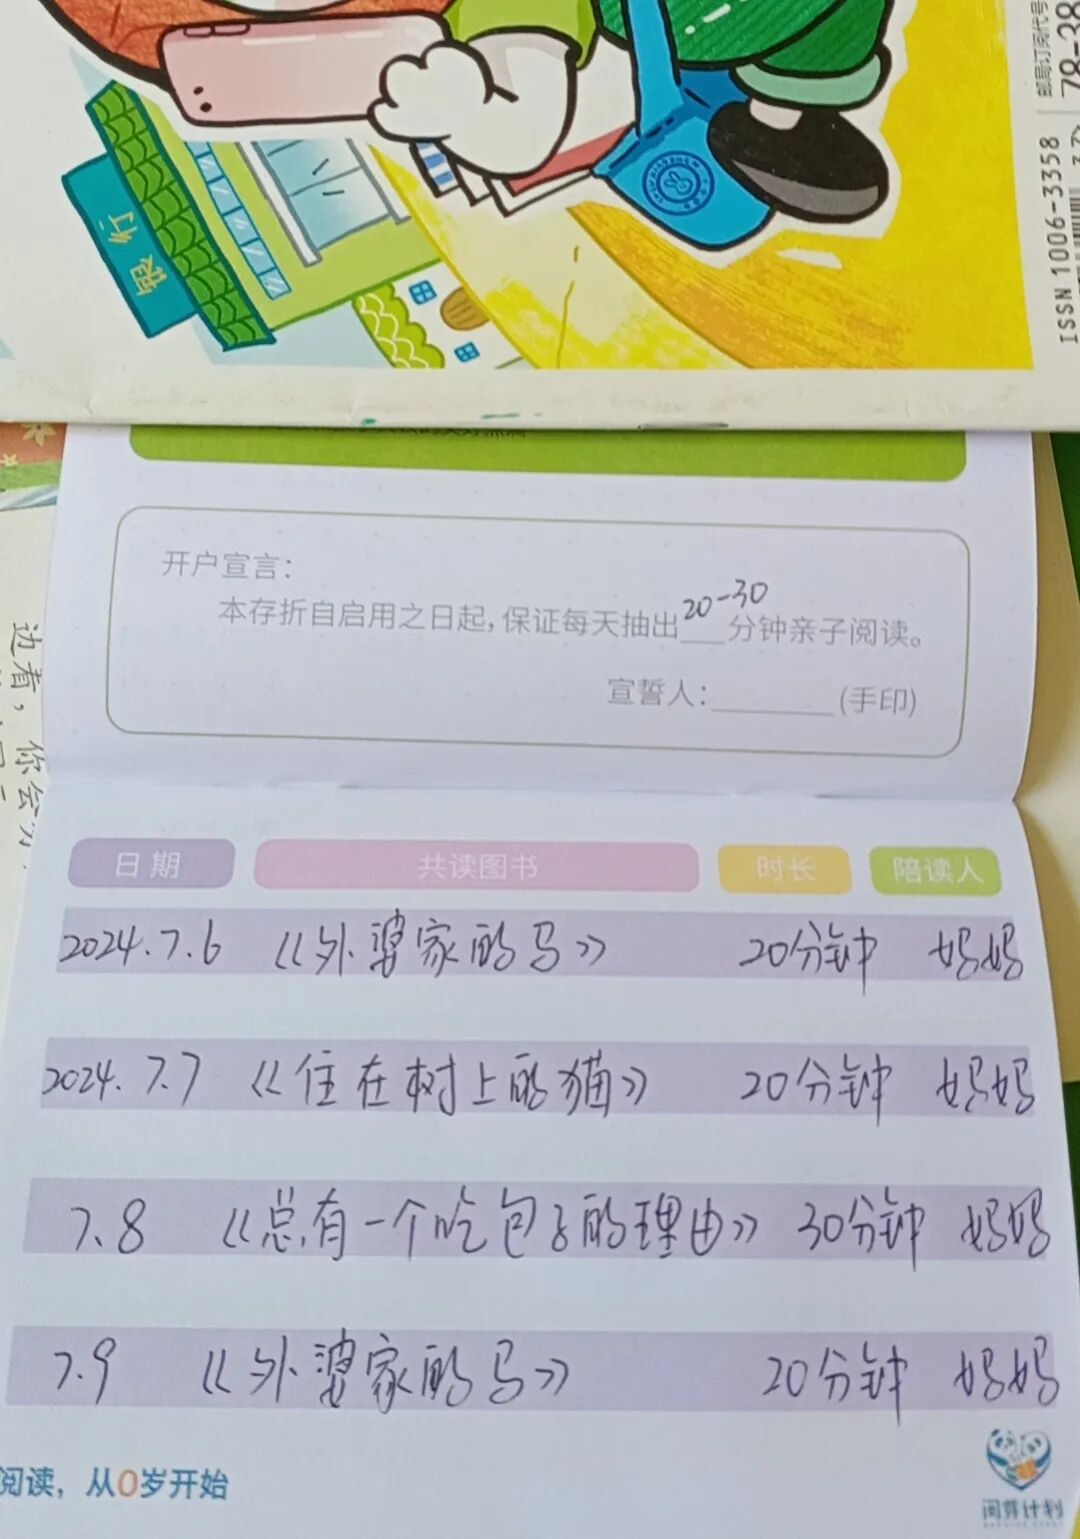 邮局订阅代号
78-38
ISSN 1006-3358
银行
开户宣言：
本存折自启用之日起，保证每天抽出20-30分钟亲子阅读。
宣誓人：________(手印)
边看，你会
日期 共读图书 时长 陪读人
2024.7.6 《外婆家的马》 20分钟 妈妈
2024.7.7 《住在树上的猫》 20分钟 妈妈
7.8 《总有一个吃包子的理由》 30分钟 妈妈
7.9 《外婆家的马》 20分钟 妈妈
阅读，从0岁开始
阅芽计划